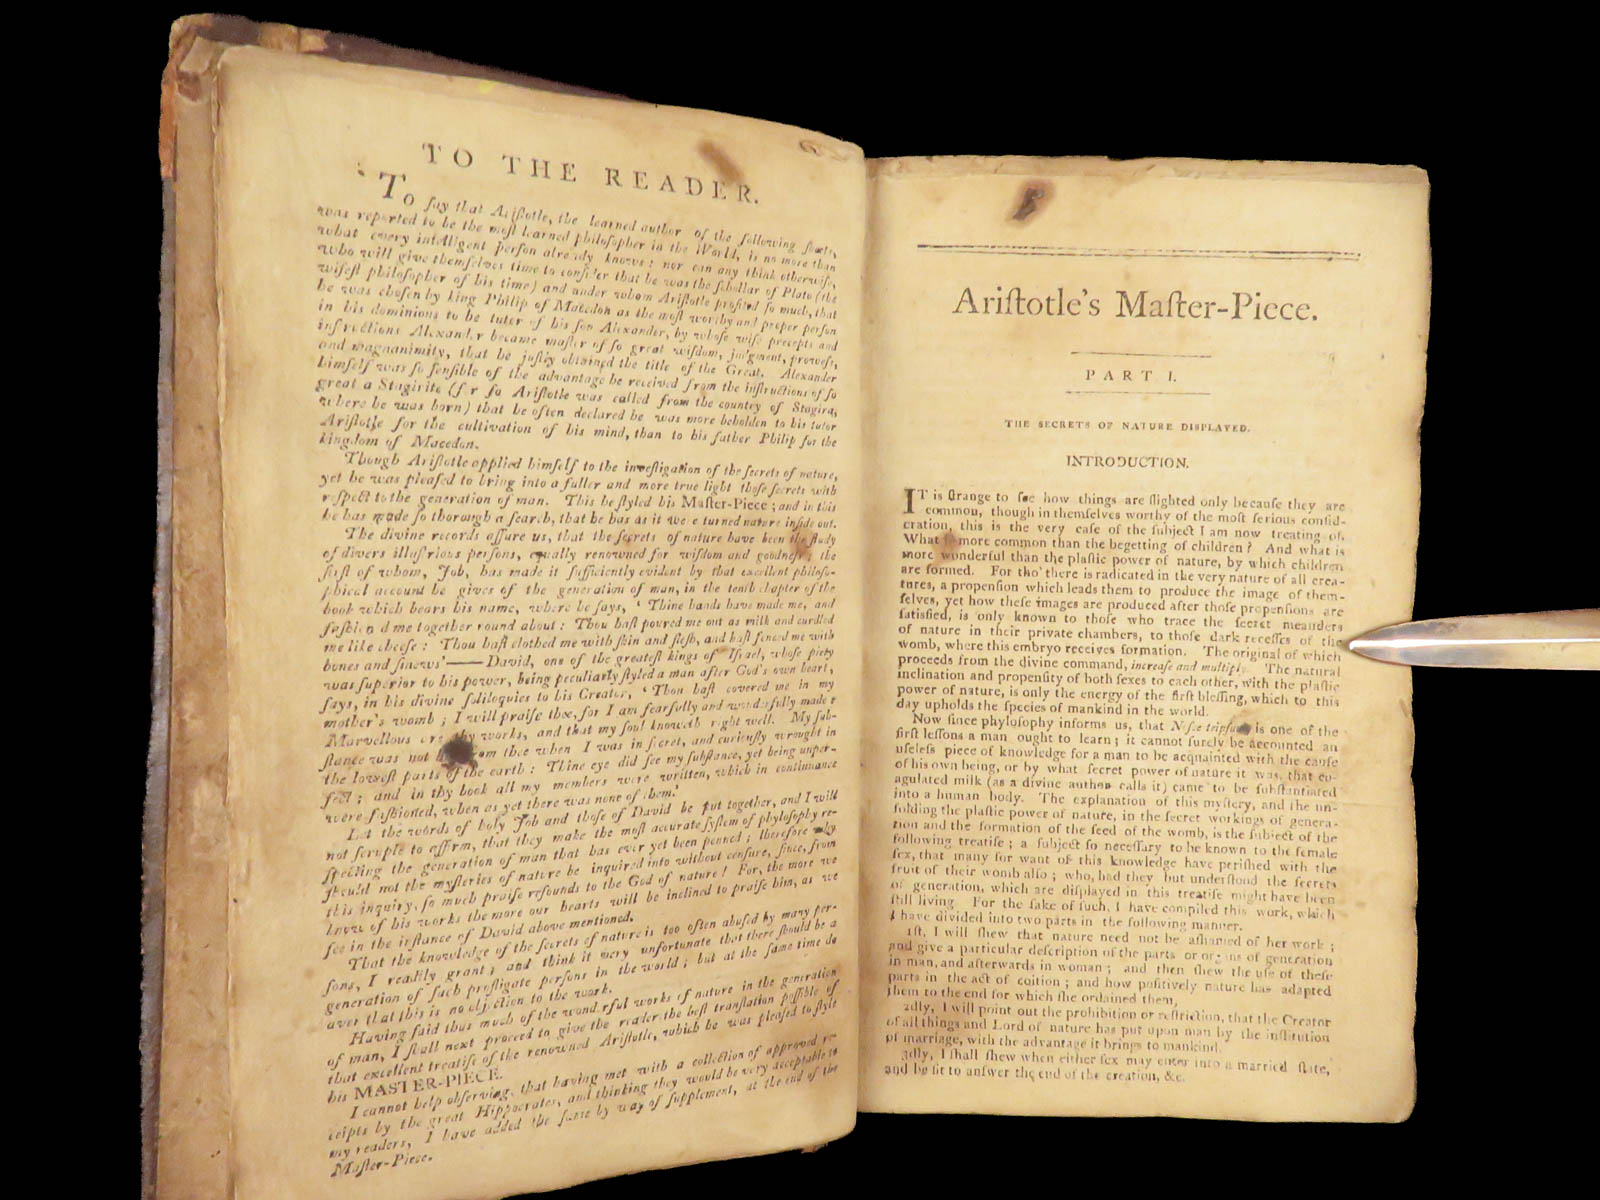 TO THE READER.
To ſay that Ariſtotle, the learned author of the following ſheets,
was reported to be the moſt learned philoſopher in the World, is no more than
what every intelligent perſon already knows: nor can any think otherwiſe,
who will give themſelves time to conſider that he was the ſchollar of Plato (the
wiſeſt philoſopher of his time) and under whom Ariſtotle profited ſo much, that
he was choſen by king Philip of Macedon as the moſt worthy and proper perſon
in his dominions to be tutor of his ſon Alexander, by whoſe wiſe precepts and
inſtructions Alexander became maſter of ſo great wiſdom, judgment, proweſs,
and magnanimity, that he juſtly obtained the title of the Great. Alexander
himſelf was ſo ſenſible of the advantage he received from the inſtructions of ſo
great a Stagirite (for ſo Ariſtotle was called from the country of Stagira,
where he was born) that he often declared he was more beholden to his tutor
Ariſtotle for the cultivation of his mind, than to his father Philip for the
kingdom of Macedon.
Though Ariſtotle applied himſelf to the inveſtigation of the ſecrets of nature,
yet he was pleaſed to bring into a fuller and more true light thoſe ſecrets with
reſpect to the generation of man. This he ſtyled his Maſter-Piece; and in this
he has made ſo thorough a ſearch, that he has as it were turned nature inſide out.
The divine records aſſure us, that the ſecrets of nature have been the ſtudy
of divers illuſtrious perſons, equally renowned for wiſdom and goodneſs; the
firſt of whom, Job, has made it ſufficiently evident by that excellent philoſo-
phical account he gives of the generation of man, in the tenth chapter of the
book which bears his name, where he ſays, ‘ Thine hands have made me, and
faſhioned me together round about: Thou haſt poured me out as milk and curdled
me like cheeſe: Thou haſt clothed me with ſkin and fleſh, and haſt fenced me with
bones and ſinews’—— David, one of the greateſt kings of Iſrael, whoſe piety
was ſuperior to his power, being peculiarly ſtyled a man after God's own heart,
ſays, in his divine ſoliloquies to his Creator, ‘ Thou haſt covered me in my
mother's womb; I will praiſe thee, for I am fearfully and wonderfully made:
Marvellous are thy works, and that my ſoul knoweth right well. My ſub-
ſtance was not from thee when I was in ſecret, and curiouſly wrought in
the loweſt parts of the earth: Thine eye did ſee my ſubſtance, yet being unper-
fect; and in thy book all my members were written, which in continuance
were faſhioned, when as yet there was none of them.’
Let the words of holy Job and thoſe of David be put together, and I will
not ſcruple to affirm, that they make the moſt accurate ſyſtem of phyloſophy re-
ſpecting the generation of man that has ever yet been penned; therefore why
ſhould not the myſteries of nature be inquired into without cenſure, ſince, from
this inquiry, ſo much praiſe reſounds to the God of nature! For, the more we
know of his works the more our hearts will be inclined to praiſe him, as we
ſee in the inſtance of David above mentioned.
That the knowledge of the ſecrets of nature is too often abuſed by many per-
ſons, I readily grant; and think it very unfortunate that there ſhould be a
generation of ſuch profligate perſons in the world; but at the ſame time do
aver that this is no objection to the work.
Having ſaid thus much of the wonderful works of nature in the generation
of man, I ſhall next proceed to give the reader the beſt tranſlation poſſible of
that excellent treatiſe of the renowned Ariſtotle, which he was pleaſed to ſtyle
his MASTER-PIECE.
I cannot help obſerving, that having met with a collection of approved re-
ceipts by the great Hippocrates, and thinking they would be very acceptable to
my readers, I have added the ſame by way of ſupplement, at the end of the
Maſter-Piece.
Ariſtotle's Maſter-Piece.
PART I.
THE SECRETS OF NATURE DISPLAYED.
INTRODUCTION.
IT is ſtrange to ſee how things are ſlighted only becauſe they are
common, though in themſelves worthy of the moſt ſerious conſid-
eration, this is the very caſe of the ſubject I am now treating of.
What is more common than the begetting of children? And what is
more wonderful than the plaſtic power of nature, by which children
are formed. For tho' there is radicated in the very nature of all crea-
tures, a propenſion which leads them to produce the image of them-
ſelves, yet how theſe images are produced after thoſe propenſions are
ſatisfied, is only known to thoſe who trace the ſecret meanders
of nature in their private chambers, to thoſe dark receſſes of the
womb, where this embryo receives formation. The original of which
proceeds from the divine command, increaſe and multiply. The natural
inclination and propenſity of both ſexes to each other, with the plaſtic
power of nature, is only the energy of the firſt bleſſing, which to this
day upholds the ſpecies of mankind in the world.
Now ſince phyloſophy informs us, that is one of the
firſt leſſons a man ought to learn; it cannot ſurely be accounted an
uſeleſs piece of knowledge for a man to be acquainted with the cauſe
of his own being, or by what ſecret power of nature it was, that co-
agulated milk (as a divine author calls it) came to be ſubſtantiated
into a human body. The explanation of this myſtery, and the un-
folding the plaſtic power of nature, in the ſecret workings of genera-
tion and the formation of the ſeed of the womb, is the ſubject of the
following treatiſe; a ſubject ſo neceſſary to be known to the female
ſex, that many for want of this knowledge have periſhed with the
fruit of their womb alſo; who, had they but underſtood the ſecrets
of generation, which are diſplayed in this treatiſe might have been
ſtill living. For the ſake of ſuch, I have compiled this work, which
I have divided into two parts in the following manner.
1ſt, I will ſhew that nature need not be aſhamed of her work;
and give a particular deſcription of the parts or organs of generation
in man, and afterwards in woman; and then ſhew the uſe of theſe
parts in the act of coition; and how poſitively nature has adapted
them to the end for which ſhe ordained them,
2dly, I will point out the prohibition or reſtriction, that the Creator
of all things and Lord of nature has put upon man by the inſtitution
of marriage, with the advantage it brings to mankind.
3dly, I ſhall ſhew when either ſex may enter into a married ſtate,
and be fit to anſwer the end of the creation, &c.